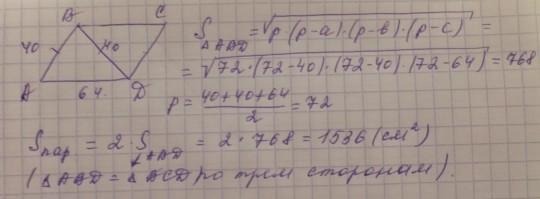 B C
40 40
A 64 D
S△ABD = √p·(p-a)·(p-b)·(p-c) =
= √72·(72-40)·(72-40)·(72-64) = 768
p = (40+40+64)/2 = 72
Sпар = 2·S△ABD = 2·768 = 1536 (см²)
(△ABD = △BCD по трем сторонам).